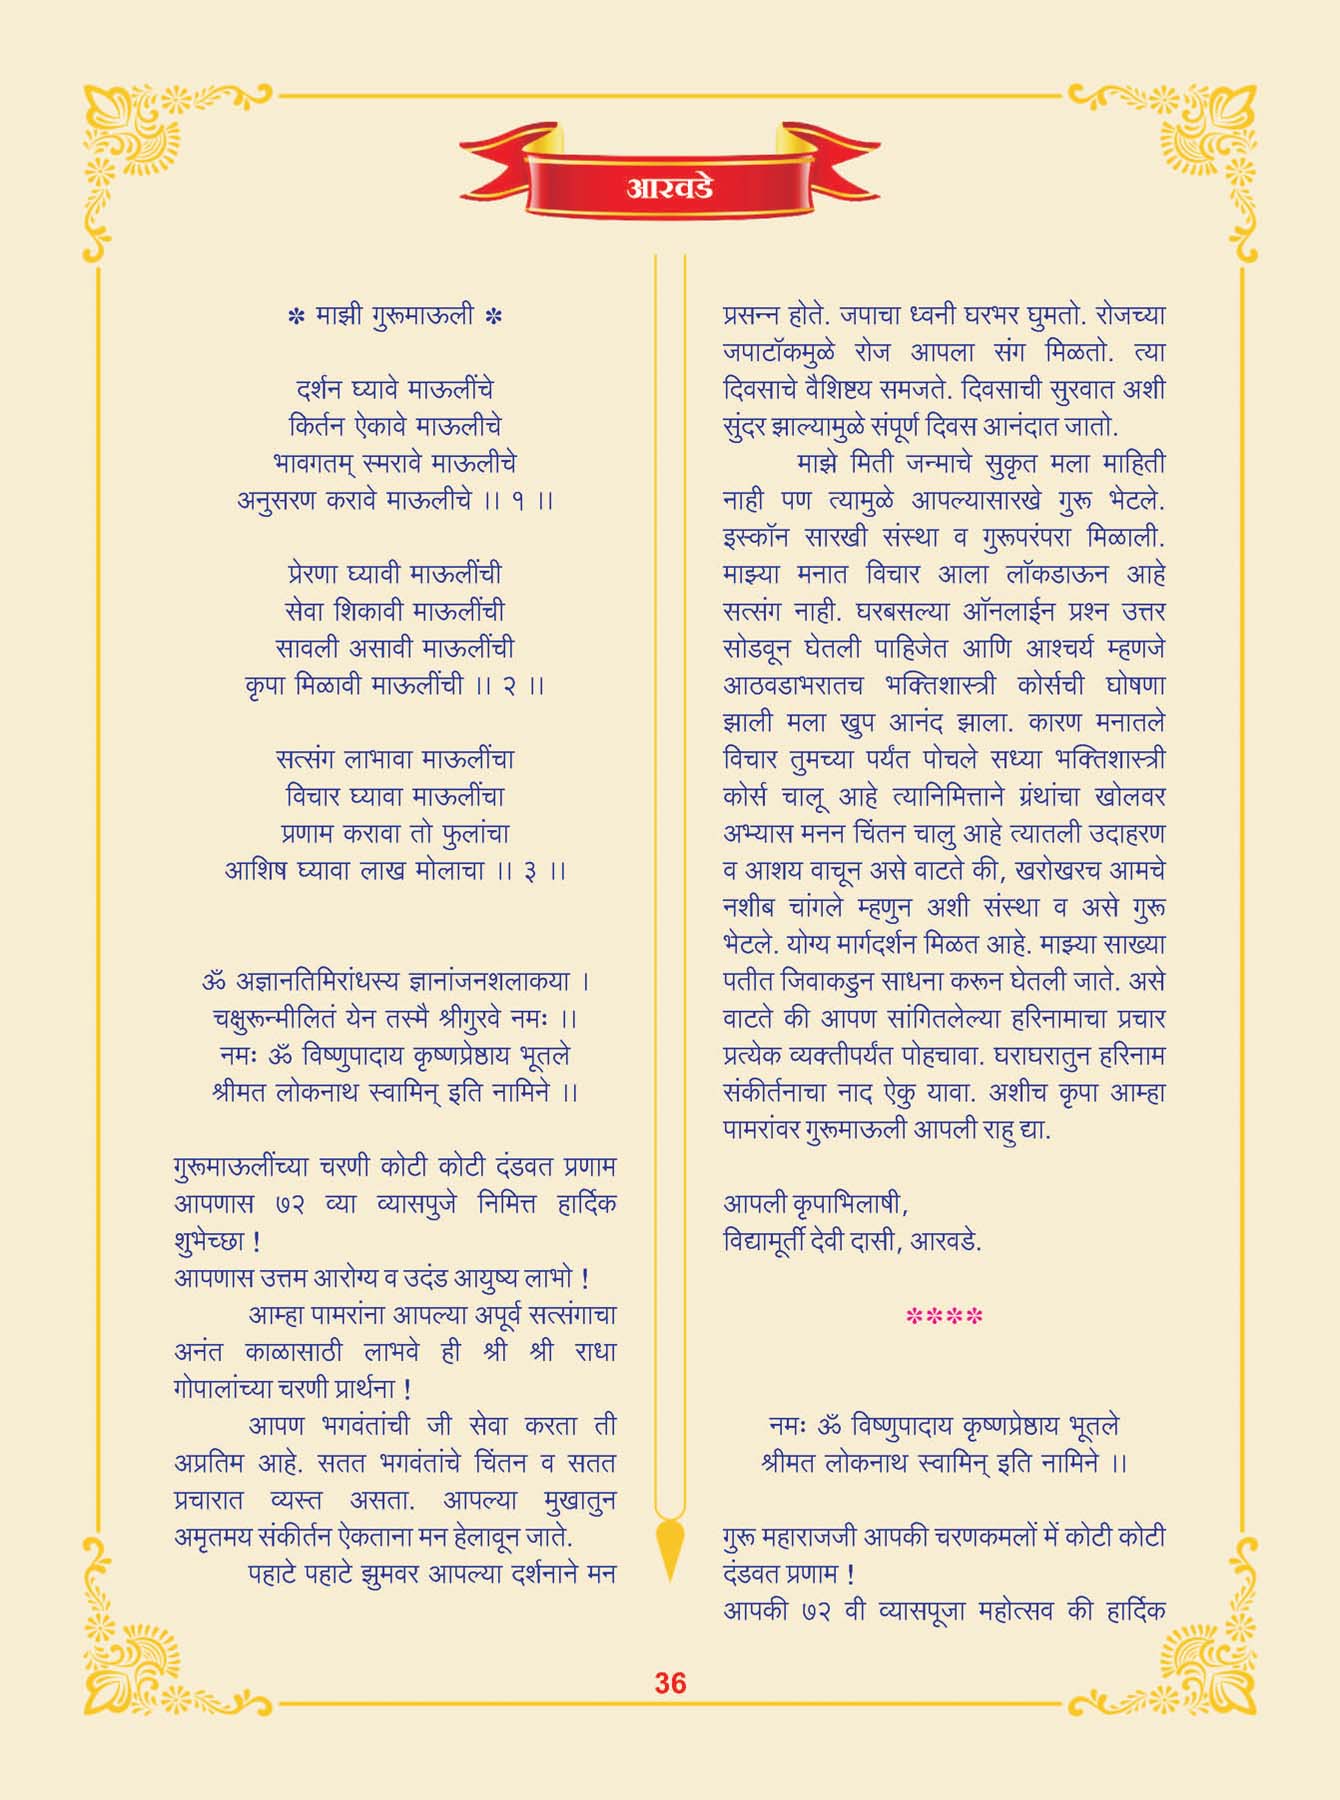 आरवडे
✽ माझी गुरूमाऊली ✽
दर्शन घ्यावे माऊलींचे
किर्तन ऐकावे माऊलीचे
भावगतम् स्मरावे माऊलीचे
अनुसरण करावे माऊलीचे ।। १ ।।
प्रेरणा घ्यावी माऊलींची
सेवा शिकावी माऊलींची
सावली असावी माऊलींची
कृपा मिळावी माऊलींची ।। २ ।।
सत्संग लाभावा माऊलींचा
विचार घ्यावा माऊलींचा
प्रणाम करावा तो फुलांचा
आशिष घ्यावा लाख मोलाचा ।। ३ ।।
ॐ अज्ञानतिमिरांधस्य ज्ञानांजनशलाकया ।
चक्षुरून्मीलितं येन तस्मै श्रीगुरवे नमः ।।
नमः ॐ विष्णुपादाय कृष्णप्रेष्ठाय भूतले
श्रीमत लोकनाथ स्वामिन् इति नामिने ।।
गुरूमाऊलींच्या चरणी कोटी कोटी दंडवत प्रणाम
आपणास ७२ व्या व्यासपुजे निमित्त हार्दिक
शुभेच्छा !
आपणास उत्तम आरोग्य व उदंड आयुष्य लाभो !
आम्हा पामरांना आपल्या अपूर्व सत्संगाचा
अनंत काळासाठी लाभवे ही श्री श्री राधा
गोपालांच्या चरणी प्रार्थना !
आपण भगवंतांची जी सेवा करता ती
अप्रतिम आहे. सतत भगवंतांचे चिंतन व सतत
प्रचारात व्यस्त असता. आपल्या मुखातुन
अमृतमय संकीर्तन ऐकताना मन हेलावून जाते.
पहाटे पहाटे झुमवर आपल्या दर्शनाने मन
प्रसन्न होते. जपाचा ध्वनी घरभर घुमतो. रोजच्या
जपाटॉकमुळे रोज आपला संग मिळतो. त्या
दिवसाचे वैशिष्टय समजते. दिवसाची सुरवात अशी
सुंदर झाल्यामुळे संपूर्ण दिवस आनंदात जातो.
माझे मिती जन्माचे सुकृत मला माहिती
नाही पण त्यामुळे आपल्यासारखे गुरू भेटले.
इस्कॉन सारखी संस्था व गुरूपरंपरा मिळाली.
माझ्या मनात विचार आला लॉकडाऊन आहे
सत्संग नाही. घरबसल्या ऑनलाईन प्रश्न उत्तर
सोडवून घेतली पाहिजेत आणि आश्चर्य म्हणजे
आठवडाभरातच भक्तिशास्त्री कोर्सची घोषणा
झाली मला खुप आनंद झाला. कारण मनातले
विचार तुमच्या पर्यंत पोचले सध्या भक्तिशास्त्री
कोर्स चालू आहे त्यानिमित्ताने ग्रंथांचा खोलवर
अभ्यास मनन चिंतन चालु आहे त्यातली उदाहरण
व आशय वाचून असे वाटते की, खरोखरच आमचे
नशीब चांगले म्हणुन अशी संस्था व असे गुरू
भेटले. योग्य मार्गदर्शन मिळत आहे. माझ्या साख्या
पतीत जिवाकडुन साधना करून घेतली जाते. असे
वाटते की आपण सांगितलेल्या हरिनामाचा प्रचार
प्रत्येक व्यक्तीपर्यंत पोहचावा. घराघरातुन हरिनाम
संकीर्तनाचा नाद ऐकु यावा. अशीच कृपा आम्हा
पामरांवर गुरूमाऊली आपली राहु द्या.
आपली कृपाभिलाषी,
विद्यामूर्ती देवी दासी, आरवडे.
✽✽✽✽
नमः ॐ विष्णुपादाय कृष्णप्रेष्ठाय भूतले
श्रीमत लोकनाथ स्वामिन् इति नामिने ।।
गुरू महाराजजी आपकी चरणकमलों में कोटी कोटी
दंडवत प्रणाम !
आपकी ७२ वी व्यासपूजा महोत्सव की हार्दिक
36